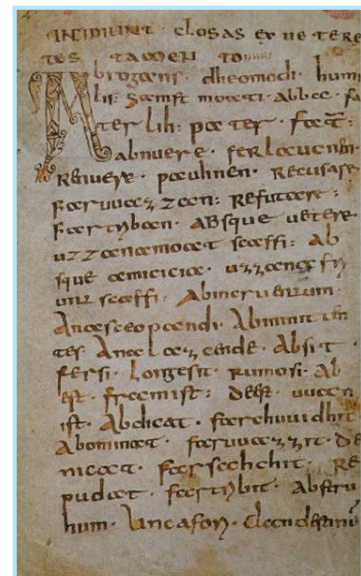 INCIPIUNT CLOSAS EX UETERE
TES TAMEN TO
Abrogans · dheomodi · hum
lis: samftmoati · abba · fa
ter lih: pater ·
abnuere · ferlaucnen ·
Renuere · pauhnen · Recusare
faruuazzan: Refutare:
fartriban · ABsque uetere
uzzanamoat scaffi: Ab
sque amicicia · uzzana fri
unt scaffi ·
Anasceopandi ·
tes · Anelazende · Absit ·
fersi · Longesit · rumosi · Ab
est · framist: deest · uuan
ist · Abdicat · farchuuidhit
Abominat · faruuazzit · De
nicat · farsahchit · Re
pudat · fartribit · Abstru
hum · Uncafori · Clandestinu